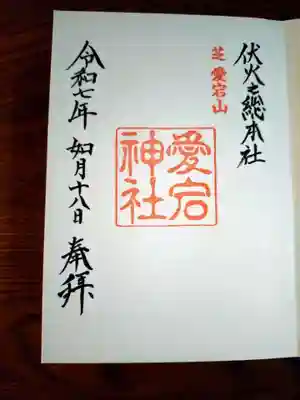 伏火之総本社
芝愛宕山
愛宕
神社
令和七年 如月十八日 奉拝